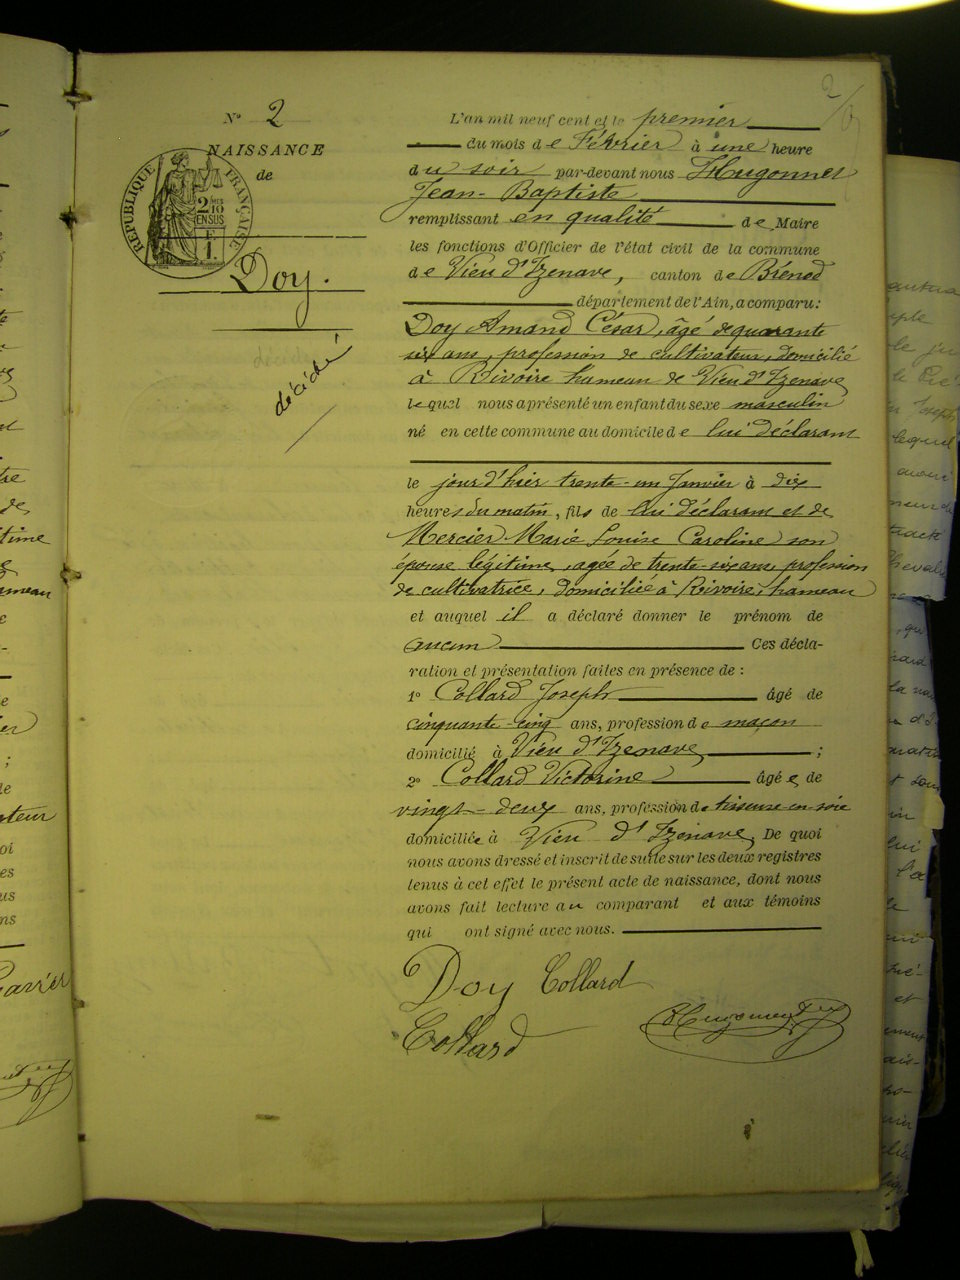 2
N° 2
NAISSANCE
de
RÉPUBLIQUE FRANÇAISE
2 MES
10
EN SUS
F.
1.
Doy.
décédé
L'an mil neuf cent et le premier
du mois de Février à une heure
du soir par-devant nous Hugonnet
Jean-Baptiste
remplissant en qualité de Maire
les fonctions d'Officier de l'état civil de la commune
de Vieu d'Izenave, canton de Brénod
département de l'Ain, a comparu :
Doy Amand César, âgé de quarante
six ans, profession de cultivateur, domicilié
à Rivoire hameau de Vieu d'Izenave
lequel nous a présenté un enfant du sexe masculin
né en cette commune au domicile de lui déclarant
le jour d'hier trente-un Janvier à dix
heures du matin, fils de lui déclarant et de
Mercier Marie Louise Caroline son
épouse légitime, agée de trente-six ans, profession
de cultivatrice, domiciliée à Rivoire, hameau
et auquel il a déclaré donner le prénom de
aucun Ces décla-
ration et présentation faites en présence de :
1° Collard Joseph âgé de
cinquante-cinq ans, profession de maçon
domicilié à Vieu d'Izenave ;
2° Collard Victorine âgée de
vingt-deux ans, profession de tisseuse en soie
domiciliée à Vieu d'Izenave, De quoi
nous avons dressé et inscrit de suite sur les deux registres
tenus à cet effet le présent acte de naissance, dont nous
avons fait lecture au comparant et aux témoins
qui ont signé avec nous.
Doy Collard
Collard